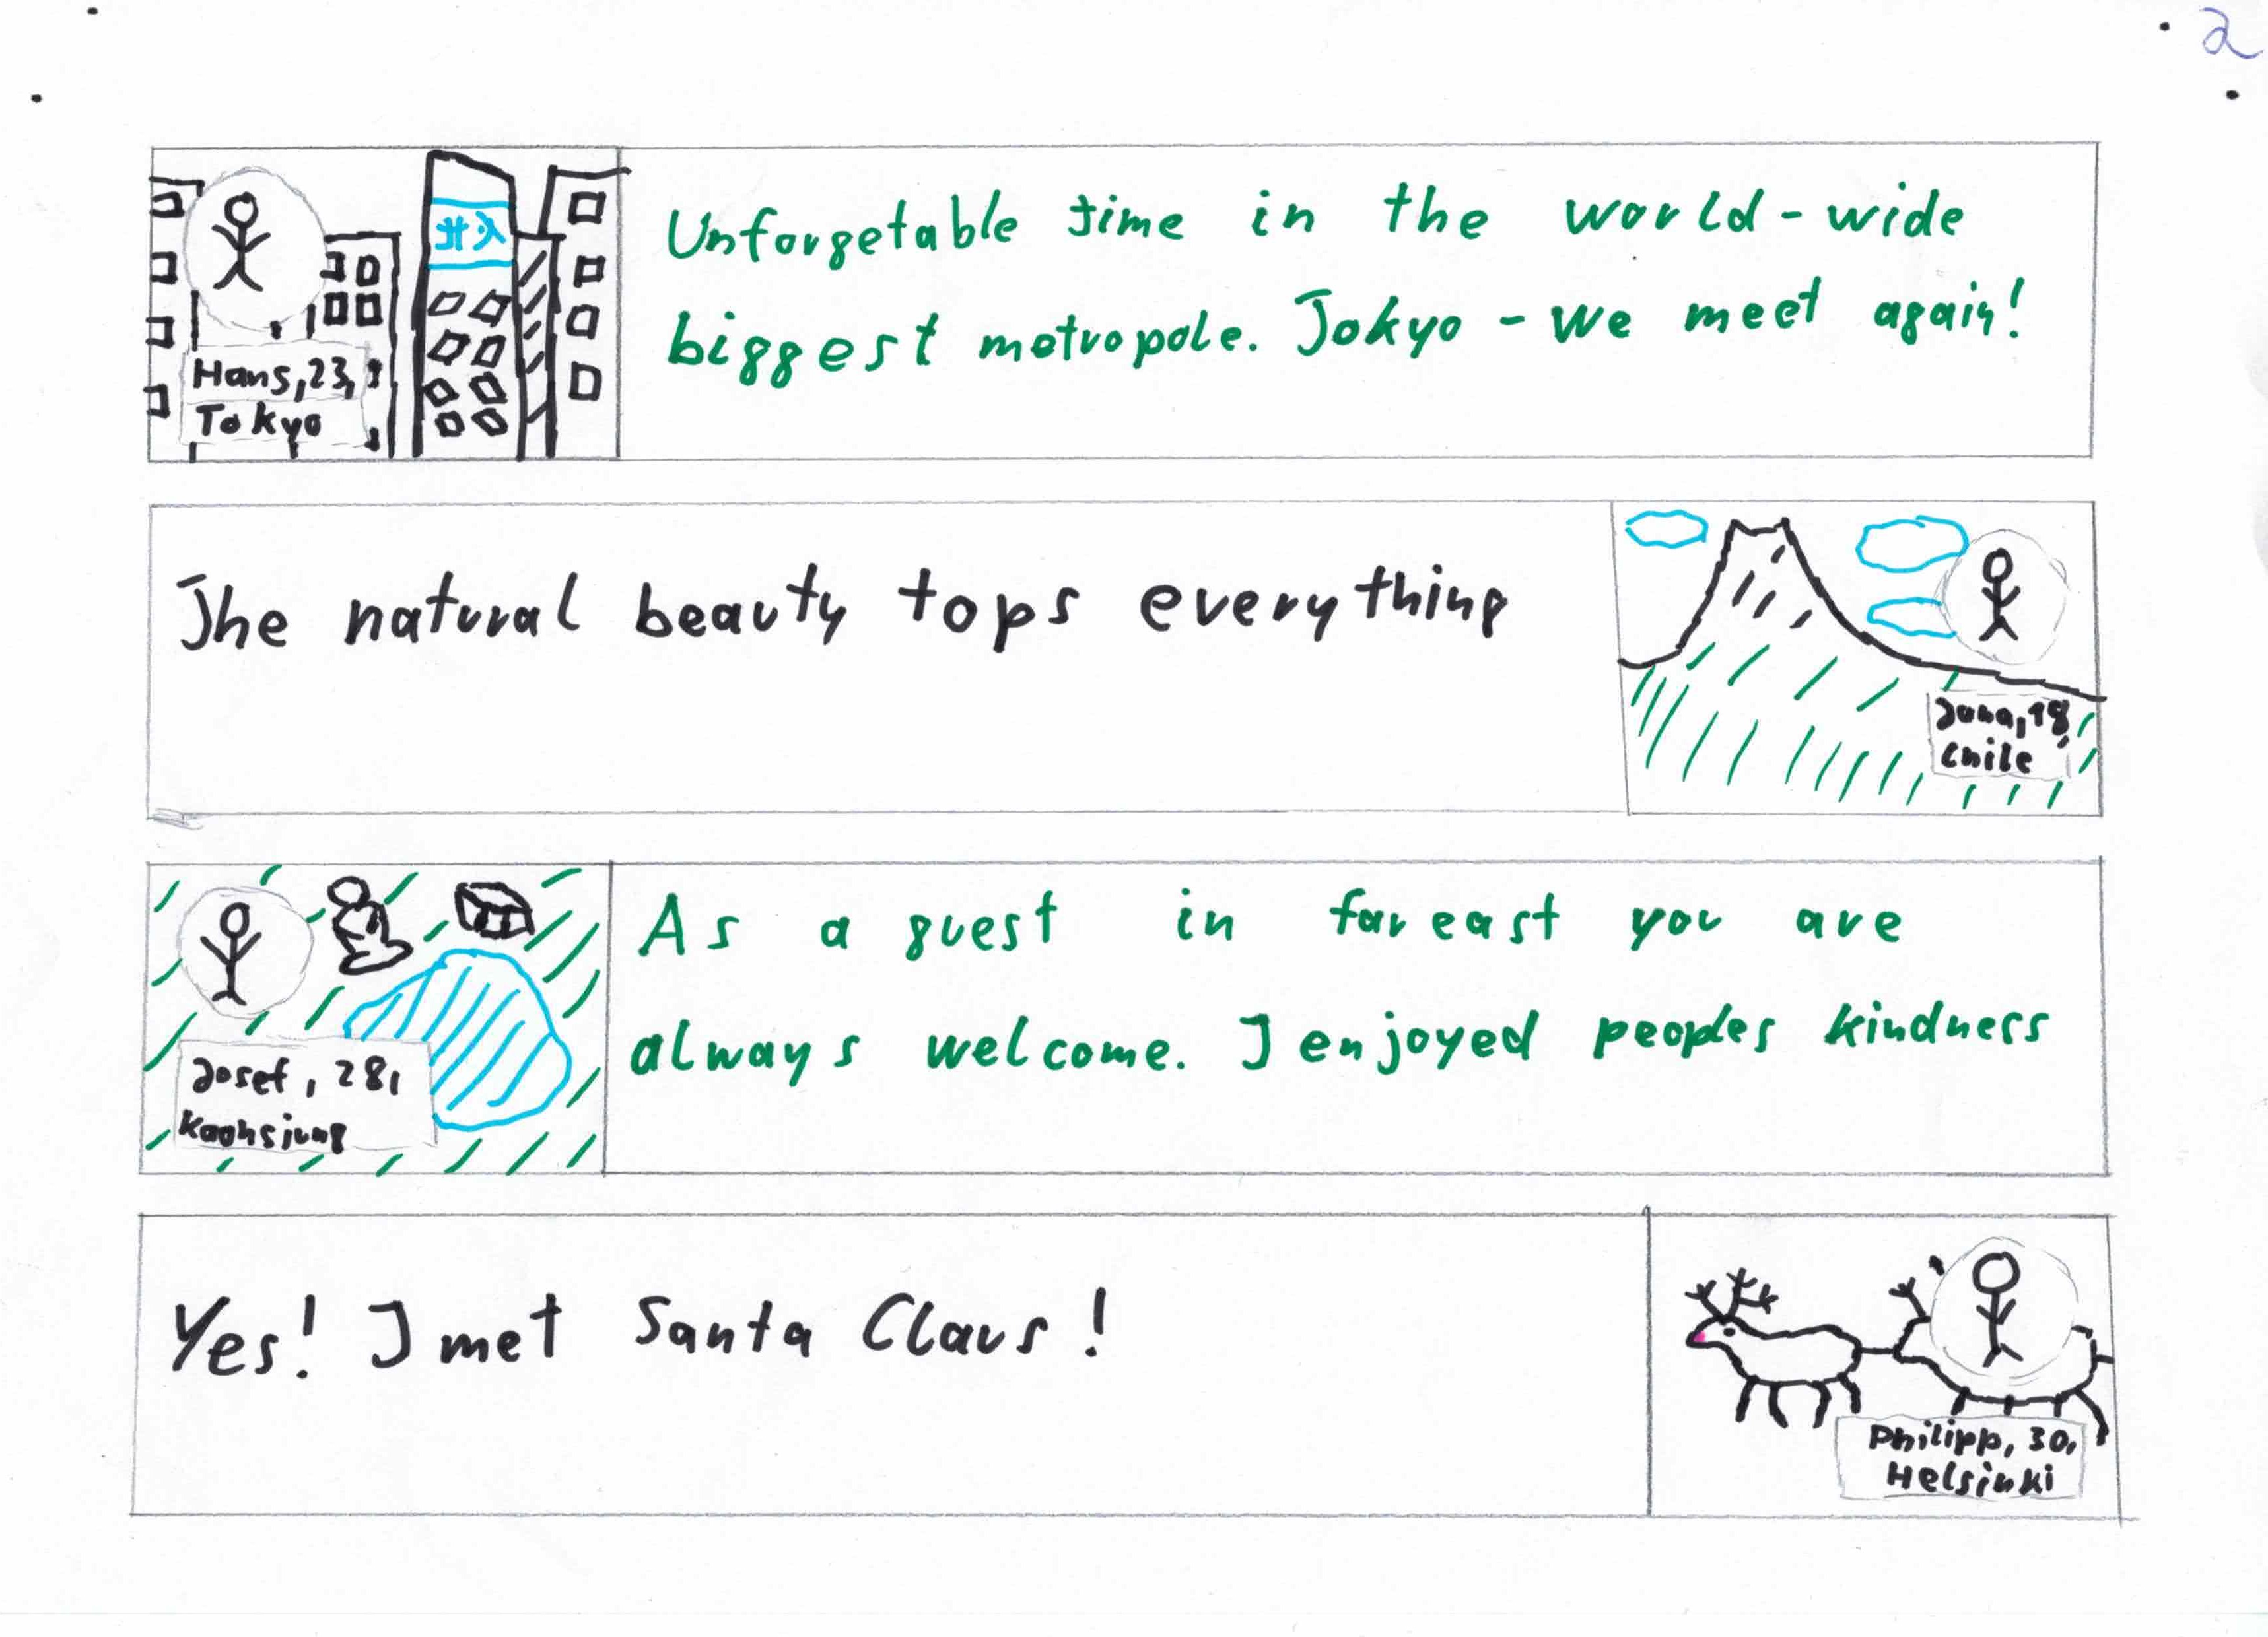 2
Unforgetable time in the world-wide
biggest metropole. Tokyo - we meet again!
Hans, 23,
Tokyo
The natural beauty tops everything
Jona, 18,
Chile
As a guest in far east you are
always welcome. I enjoyed peoples kindness
Josef, 28,
Kaohsiung
Yes! I met Santa Claus!
Philipp, 30,
Helsinki